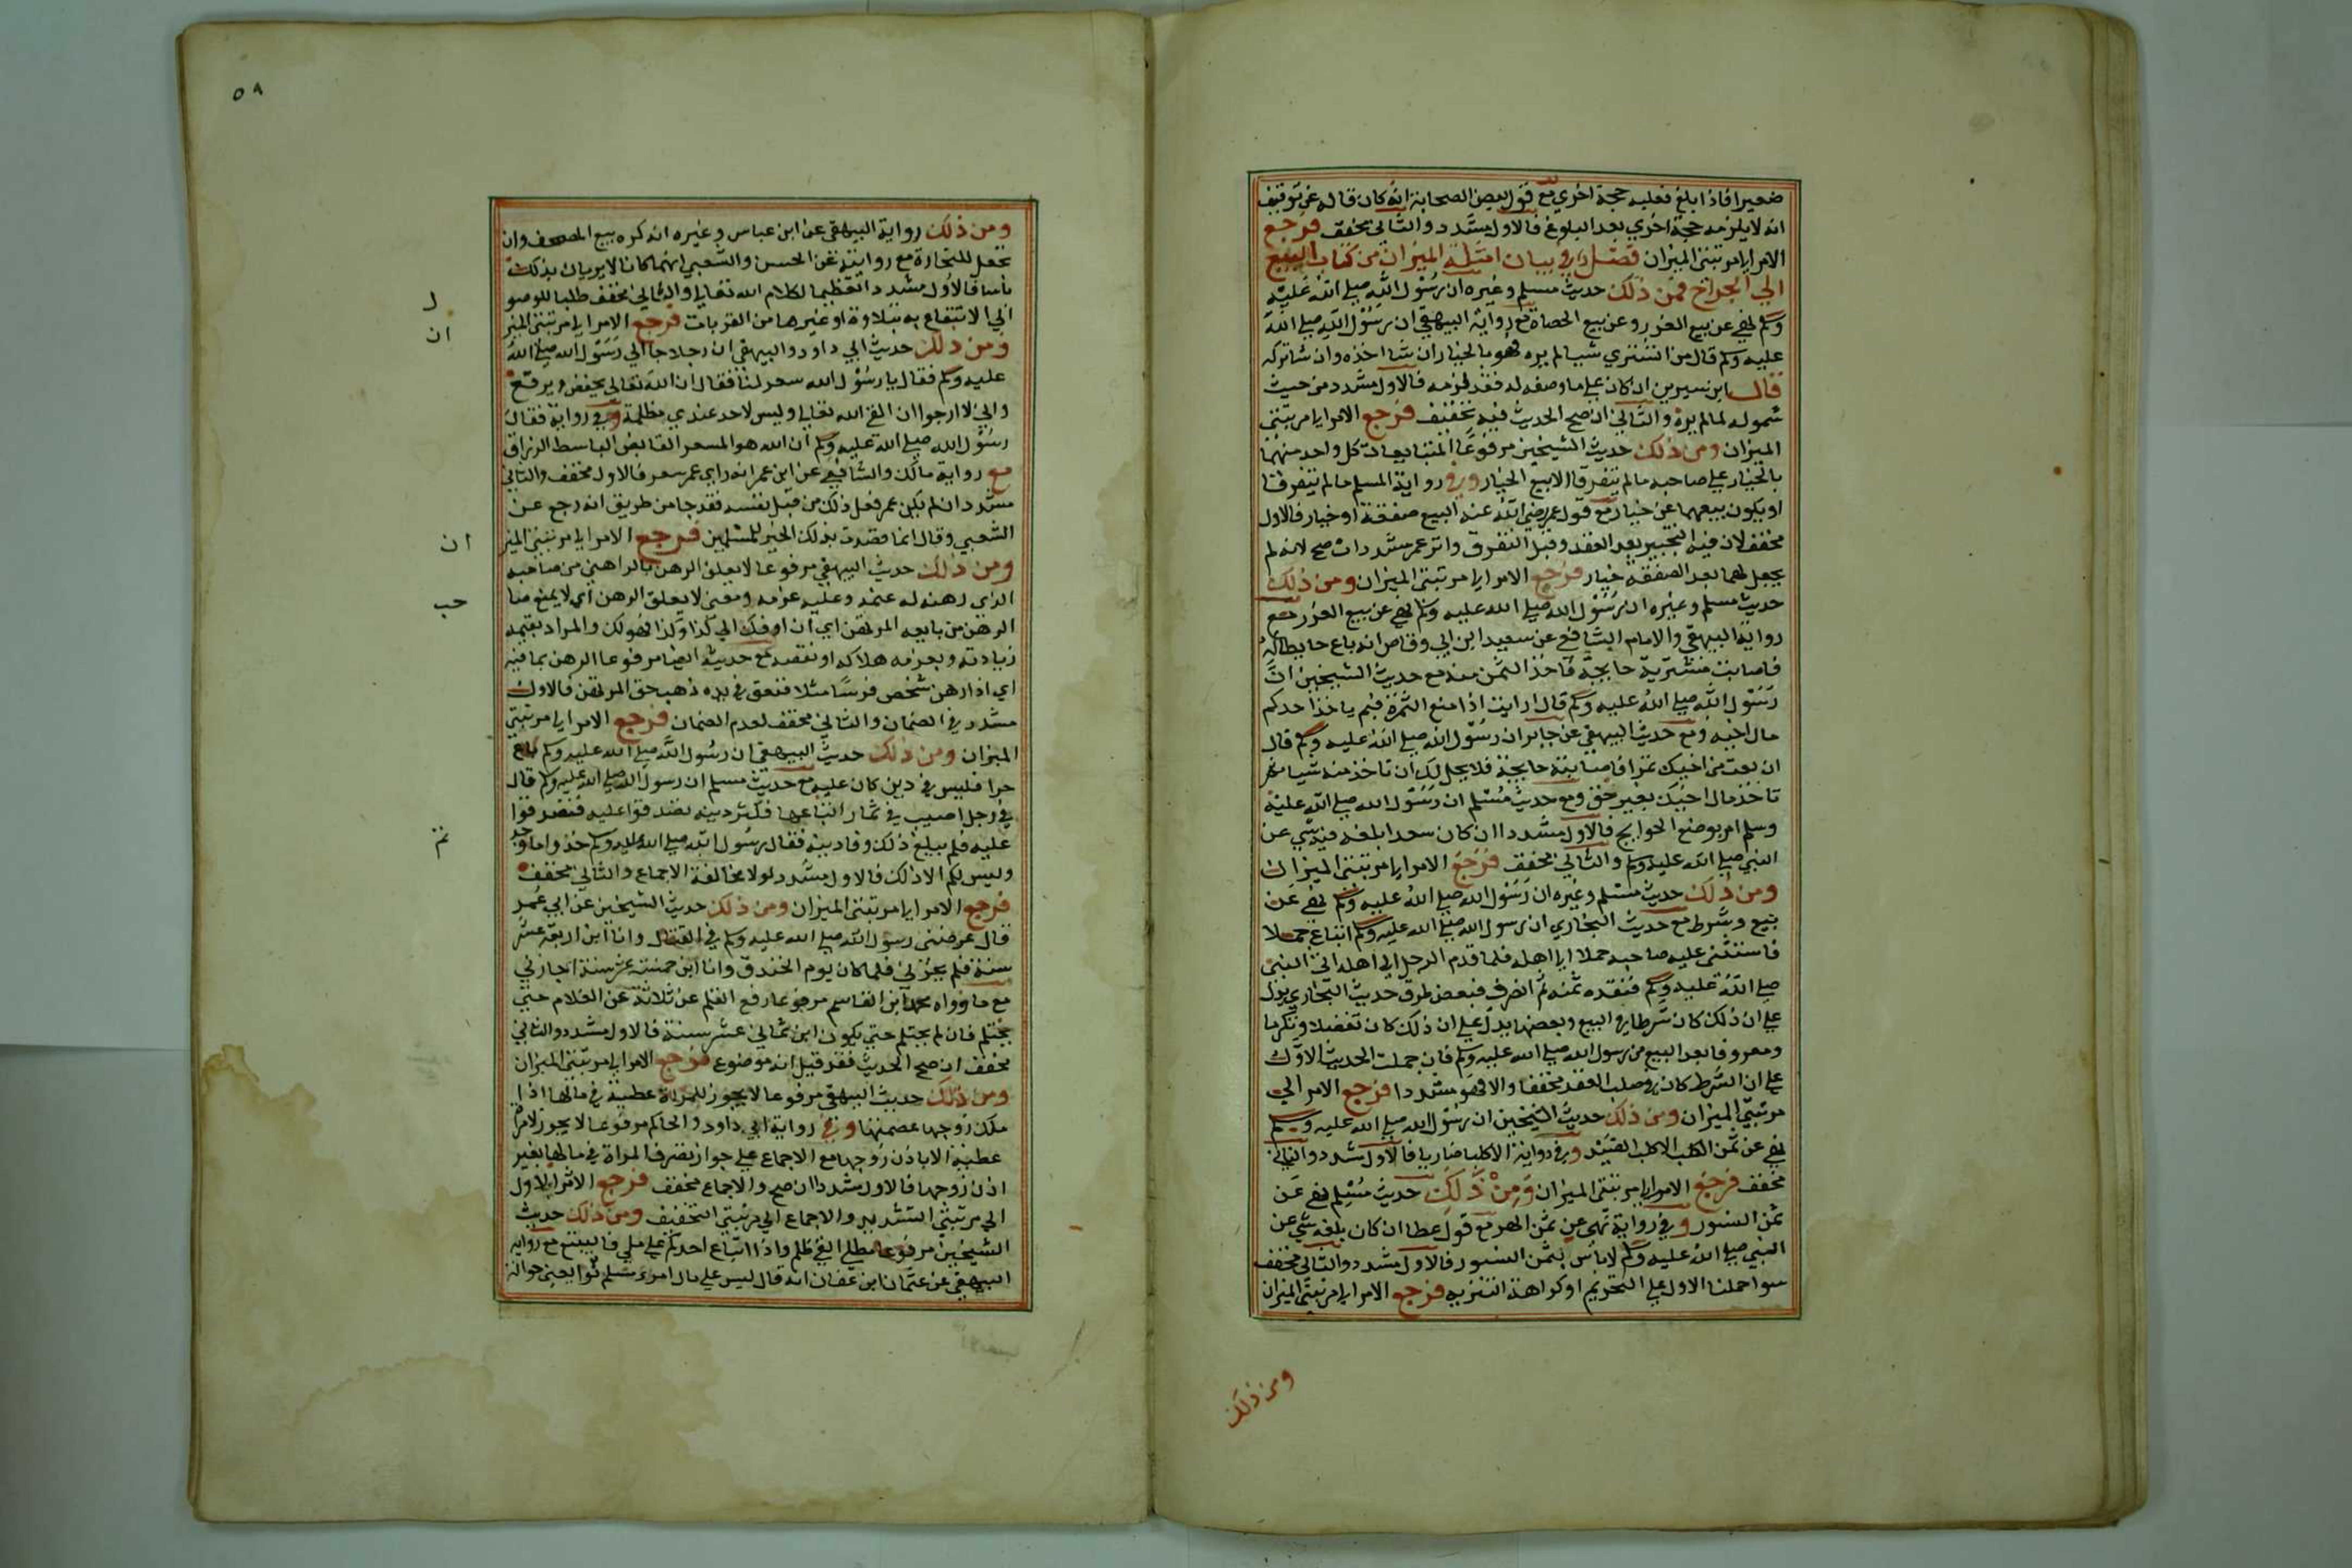 صغيرا فاذا بلغ فعليه حجة اخري مع قول بعض الصحابة انه كان قاله عن توقيف
انه لا يلزمه حجة اخري بعد البلوغ فالاول مشدد والثاني مخفف فرجع
الامر الي مرتبتي الميزان فصل في بيان امثلة الميزان من كتاب البيع
الي الجراح فمن ذلك حديث مسلم وغيره ان رسول الله صلي الله عليه
وسلم نهي عن بيع الغرر وعن بيع الحصاة مع رواية البيهقي ان رسول الله صلي الله
عليه وسلم قال من اشتري شيا لم يره فهو بالخيار ان شا اخذه وان شا تركه
قال ابن سيرين ان كان علي ما وصفه له فقد لزمه فالاول مشدد من حيث
شموله لما لم يره والثاني ان صح الحديث فيه تخفيف فرجع الامر الي مرتبتي
الميزان ومن ذلك حديث الشيخين مرفوعا المتبايعان كل واحد منهما
بالخيار علي صاحبه ما لم يتفرقا الا بيع الخيار وفي رواية المسلم ما لم يتفرقا
او يكون بيعهما عن خيار مع قول عمر رضي الله عنه البيع صفقة او خيار فالاول
مخفف لان فيه التخيير بعد العقد وقبل التفرق واثر عمر مشدد ان صح لانه لم
يجعل لهما بعد الصفقة خيار فرجع الامر الي مرتبتي الميزان ومن ذلك
حديث مسلم وغيره ان رسول الله صلي الله عليه وسلم نهي عن بيع الغرر مع
رواية البيهقي والامام الشافعي عن سعيد ابن ابي وقاص انه باع حايطا له
فاصابت مشتريه حايجة فاخذ الثمن منه مع حديث الشيخين ان
رسول الله صلي الله عليه وسلم قال ارايت اذا منع الثمرة فبم ياخذ احدكم
مال اخيه ومع حديث البيهقي عن جابر ان رسول الله صلي الله عليه وسلم قال
ان بعت من اخيك تمرا فاصابته حايجة فلا يحل لك ان تاخذ منه شيا بم
تاخذ مال اخيك بغير حق ومع حديث مسلم ان رسول الله صلي الله عليه
وسلم امر بوضع الحوايج فالاول مشدد ان كان سعدا بلغه فيه شي عن
النبي صلي الله عليه وسلم والثاني مخفف فرجع الامر الي مرتبتي الميزان
ومن ذلك حديث مسلم وغيره ان رسول الله صلي الله عليه وسلم نهي عن
بيع وشرط مع حديث البخاري ان رسول الله صلي الله عليه وسلم ابتاع جملا
فاستثني عليه صاحبه حملا الي اهله فلما قدم الرجل الي اهله اتي النبي
صلي الله عليه وسلم فنقده ثمنه ثم انصرف فبعض طرق حديث البخاري يدل
علي ان ذلك كان شرطا في البيع وبعضها يدل علي ان ذلك كان تفضلا وتكرما
ومعروفا بعد البيع من رسول الله صلي الله عليه وسلم فان حملت الحديث الاول
علي ان الشرط كان في صلب العقد مخففا والا فهو مشددا فرجع الامر الي
مرتبتي الميزان ومن ذلك حديث الشيخين ان رسول الله صلي الله عليه وسلم
نهي عن ثمن الكلب الا كلب الصيد وفي رواية الا كلبا ضاريا فالاول مشدد والثاني
مخفف فرجع الامر الي مرتبتي الميزان ومن ذلك حديث مسلم نهي عن
ثمن السنور وفي رواية نهي عن ثمن الهر مع قول عطا ان كان بلغه شي عن
النبي صلي الله عليه وسلم لا باس بثمن السنور فالاول مشدد والثاني مخفف
سوا حملنا الاول علي التحريم او كراهة التنزيه فرجع الامر الي مرتبتي الميزان
ومن ذلك
٥٨
ومن ذلك رواية البيهقي عن ابن عباس وغيره انه كره بيع المصحف وان
تجعل للتجارة مع روايته عن الحسن والشعبي انهما كانا لا يريان بذلك
باسا فالاول مشدد تعظيما لكلام الله تعالي والثاني مخفف طلبا للوصو
الي الانتفاع به بتلاوة او غيرها من القربات فرجع الامر الي مرتبتي الميز
ومن ذلك حديث ابي داود والبيهقي ان رجلا جا الي رسول الله صلي الله
عليه وسلم فقال يا رسول الله سعر لنا فقال ان الله تعالي يخفض ويرفع
واني لارجوا ان القي الله تعالي وليس لاحد عندي مظلمة وفي رواية فقال
رسول الله صلي الله عليه وسلم ان الله هو المسعر القابض الباسط الرزاق
مع رواية مالك والشافعي عن ابن عمر انه راي عمر سعر فالاول مخفف والثاني
مشدد ان لم يكن عمر فعل ذلك من قبل نفسه فقد جا من طريق انه رجع عن
الشعبي وقال انما قصدت بذلك الخير للمسلمين فرجع الامر الي مرتبتي الميز
ومن ذلك حديث البيهقي مرفوعا لا يعلق الرهن بالراهن من صاحبه
الذي رهنه له غنمه وعليه غرمه ومعني لا يعلق الرهن اي لا يمنع منا
الرهن من بايعه المرتهن اي ان اوفك الي كذا وكذا فهو لك والمراد بغنمه
زيادته وبغرمه هلاكه او نقصه مع حديثه ايضا مرفوعا الرهن بما فيه
اي اذا رهن شخص فرسا مثلا فنفق في يده ذهب حق المرتهن فالاول
مشدد في الضمان والثاني مخفف لعدم الضمان فرجع الامر الي مرتبتي
الميزان ومن ذلك حديث البيهقي ان رسول الله صلي الله عليه وسلم باع
حرا فليس في دين كان عليه مع حديث مسلم ان رسول الله صلي الله عليه وسلم قال
في رجل اصيب في ثمار ابتاعها فكثر دينه تصدقوا عليه فتصدقوا
عليه فلم يبلغ ذلك وفا دينه فقال رسول الله صلي الله عليه وسلم خذوا ما وجد
وليس لكم الا ذلك فالاول مشدد لولا مخالفة الاجماع والثاني مخفف
فرجع الامر الي مرتبتي الميزان ومن ذلك حديث الشيخين عن ابي عمر
قال عرضني رسول الله صلي الله عليه وسلم في القتال وانا ابن اربعة عشر
سنة فلم يجزني فلما كان يوم الخندق وانا ابن خمسة عشر سنة اجازني
مع ما رواه محمد ابن القاسم مرفوعا رفع القلم عن ثلاثة عن الغلام حتي
يحتلم فان لم يحتلم حتي يكون ابن ثماني عشر سنة فالاول مشدد والثاني
مخفف ان صح الحديث فقد قيل انه موضوع فرجع الامر الي مرتبتي الميزان
ومن ذلك حديث البيهقي مرفوعا لا يجوز للمراة عطية في مالها اذا
ملك زوجها عصمتها وفي رواية ابي داود والحاكم مرفوعا لا يجوز لامراة
عطية الا باذن زوجها مع الاجماع علي جواز تصرف المراة في مالها بغير
اذن زوجها فالاول مشدد ان صح والاجماع مخفف فرجع الاثر الاول
الي مرتبتي التشديد والاجماع الي مرتبتي التخفيف ومن ذلك حديث
الشيخين مرفوعا مطل الغني ظلم واذا اتباع احدكم علي ملي فاليبتع مع رواية
البيهقي عن عثمان ابن عفان انه قال ليس علي مال امرء مسلم توا يعني حوالة
ل
ان
ان
حب
تم